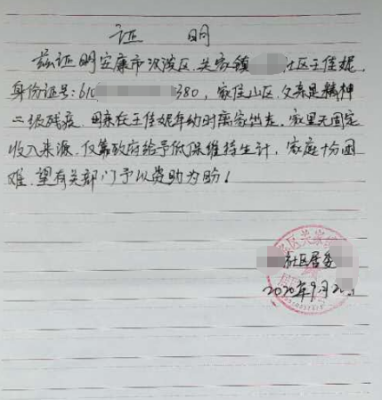 证 明
兹证明安康市汉滨区关家镇 社区王佳妮,
身份证号:610 380,家住山区,父亲是精神
二级残疾,母亲在王佳妮年幼时离家出走,家里无固定
收入来源,仅靠政府给予低保维持生计,家庭十分困
难,望有关部门予以资助为盼!
社区居委
2020年9月2